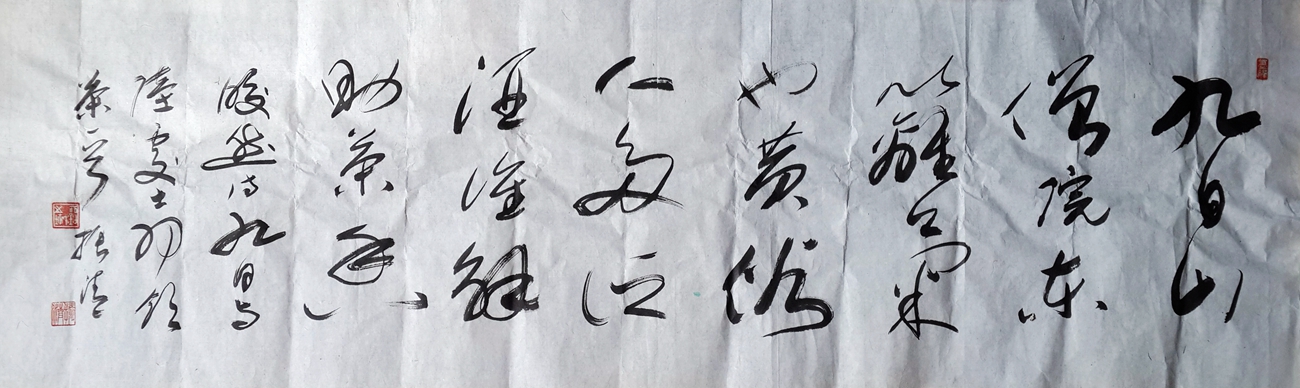 九日山
僧院东
籬菊
也黄俗
人多泛
酒谁解
助茶香
皎然诗九日与
陸處士羽饮
茶